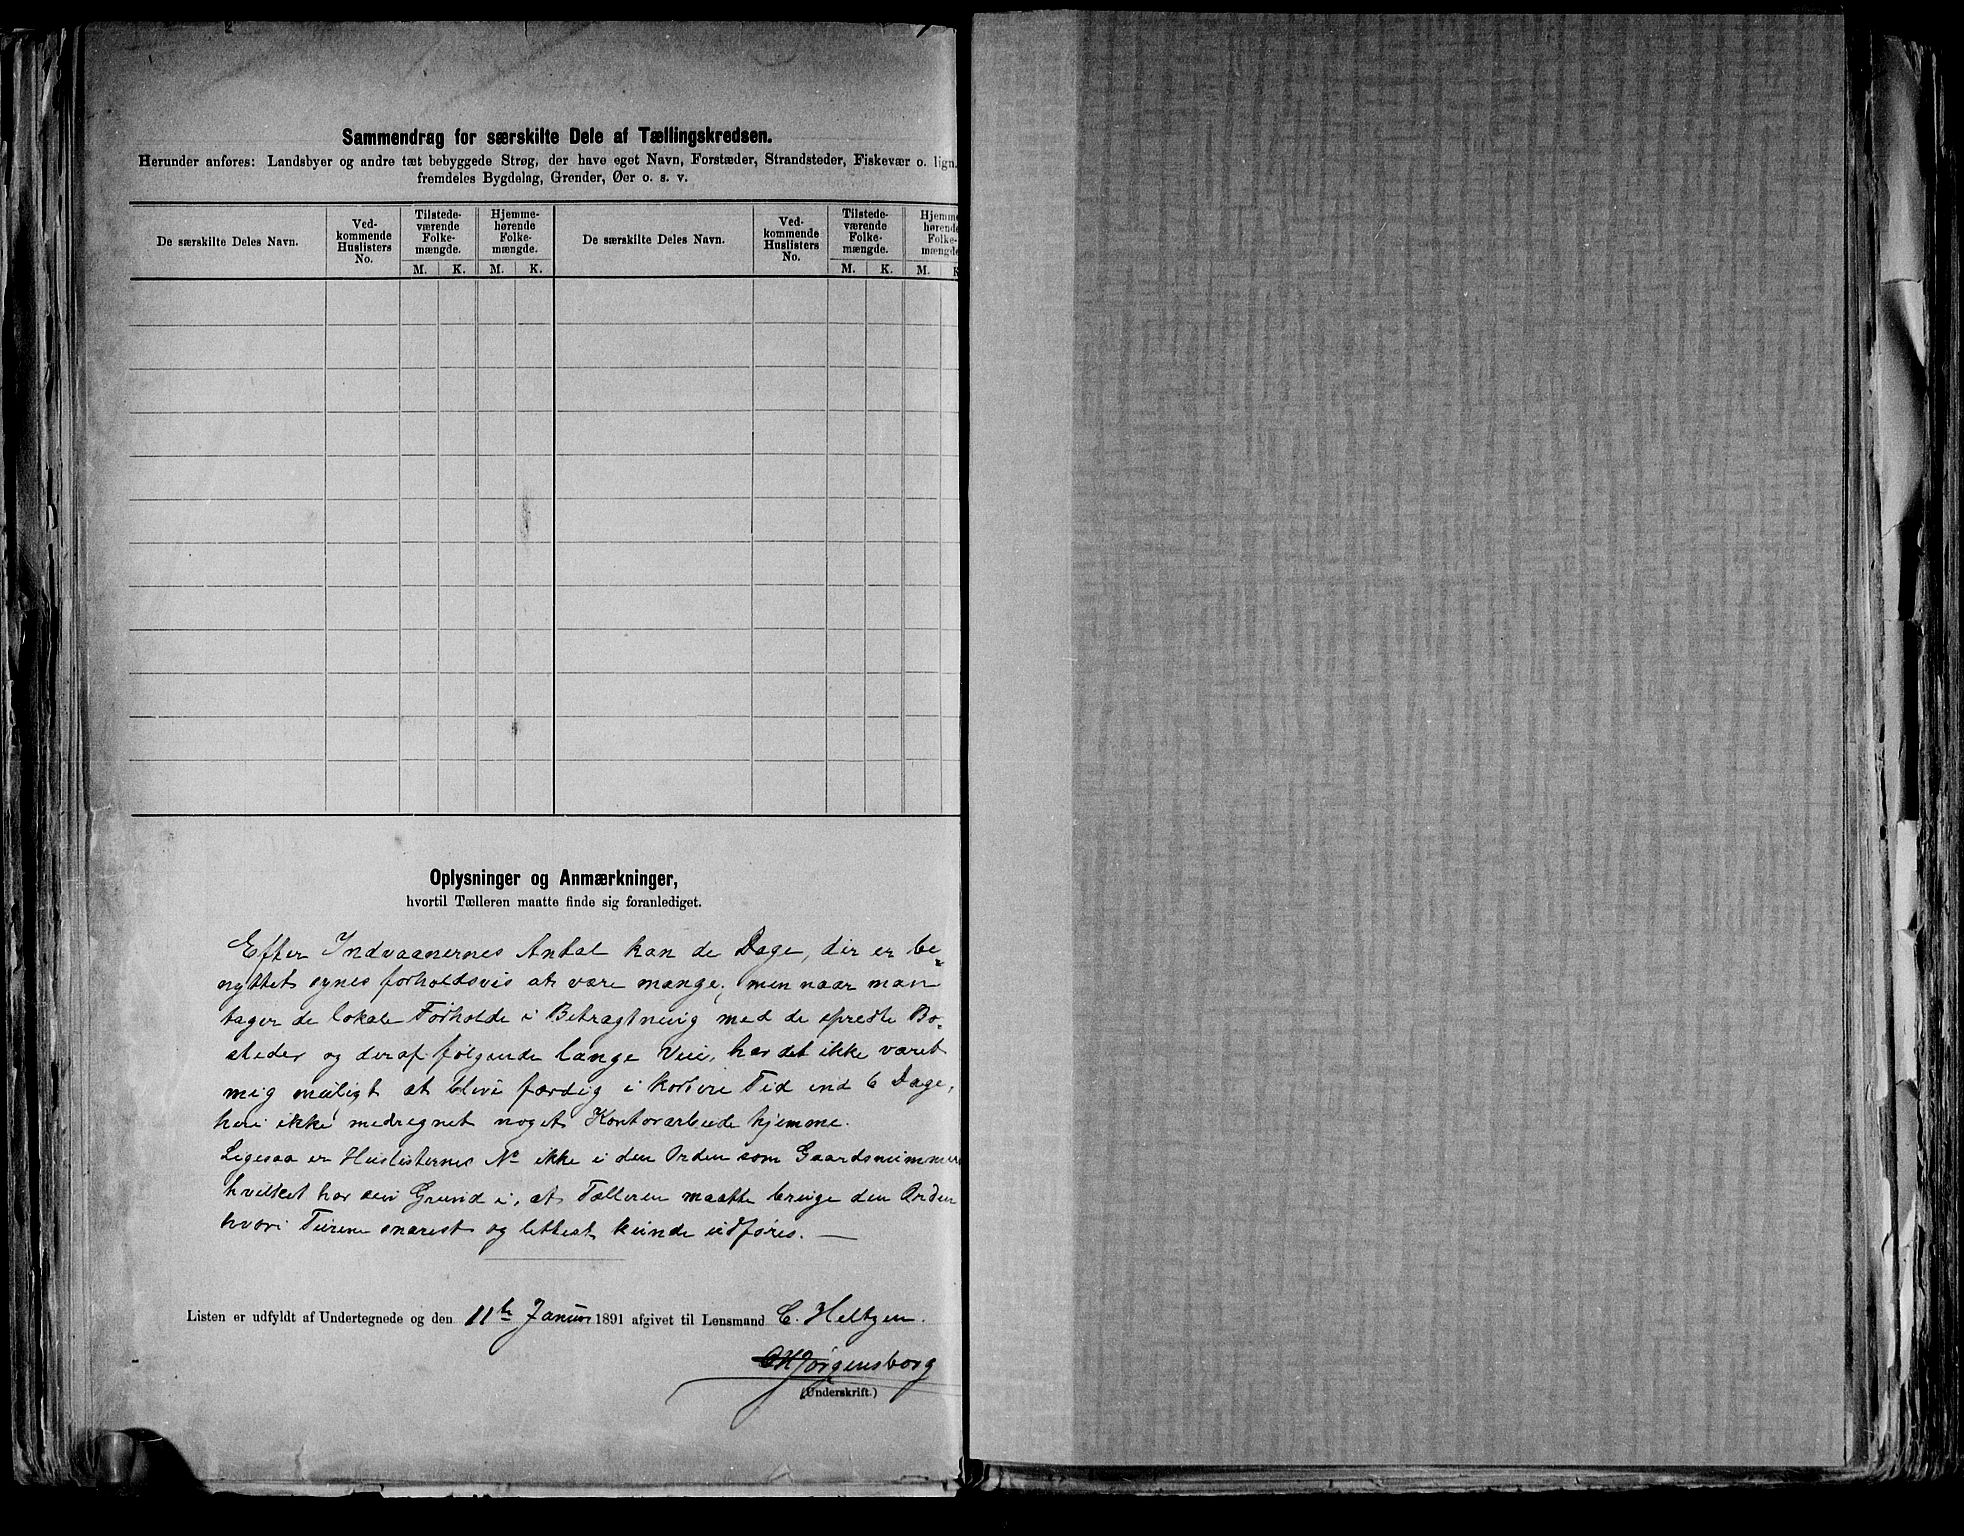 Sammendrag for særskilte Dele af Tællingskredsen.
Herunder anføres: Landsbyer og andre tæt bebyggede Strøg, der have eget Navn, Forstæder, Strandsteder, Fiskevær o. lign.
fremdeles Bygdelag, Grender, Øer o. s. v.
De særskilte Deles Navn. Ved-kommende Huslisters No. Tilstede-værende Folke-mængde. Hjemme-hørende Folke-mængde. De særskilte Deles Navn. Ved-kommende Huslisters No. Tilstede-værende Folke-mængde. Hjemme-hørende Folke-mængde
M. K. M. K. M. K. M. K
Oplysninger og Anmærkninger,
hvortil Tælleren maatte finde sig foranlediget.
Efter Indvaanernes Antal kan de Dage, der er be-
nyttet synes forholdsvis at være mange; men naar man
tager de lokale Forholde i Betragtning med de spredte Bo-
steder og deraf følgende lange Veie, har det ikke været
mig muligt at blive færdig i kortere Tid end 6 Dage,
heri ikke medregnet noget Kontorarbeide hjemme.
Ligesaa er Huslisternes No ikke i den Orden som Gaardsnummer
hvilket har sin Grund i, at Tælleren maatte bruge den Orden
hvori Turene snarest og lettest kunde udføres. —
Listen er udfyldt af Undertegnede og den 11te Januar 1891 afgivet til Lensmand C. Heltzen.
Jørgensborg
(Underskrift.)